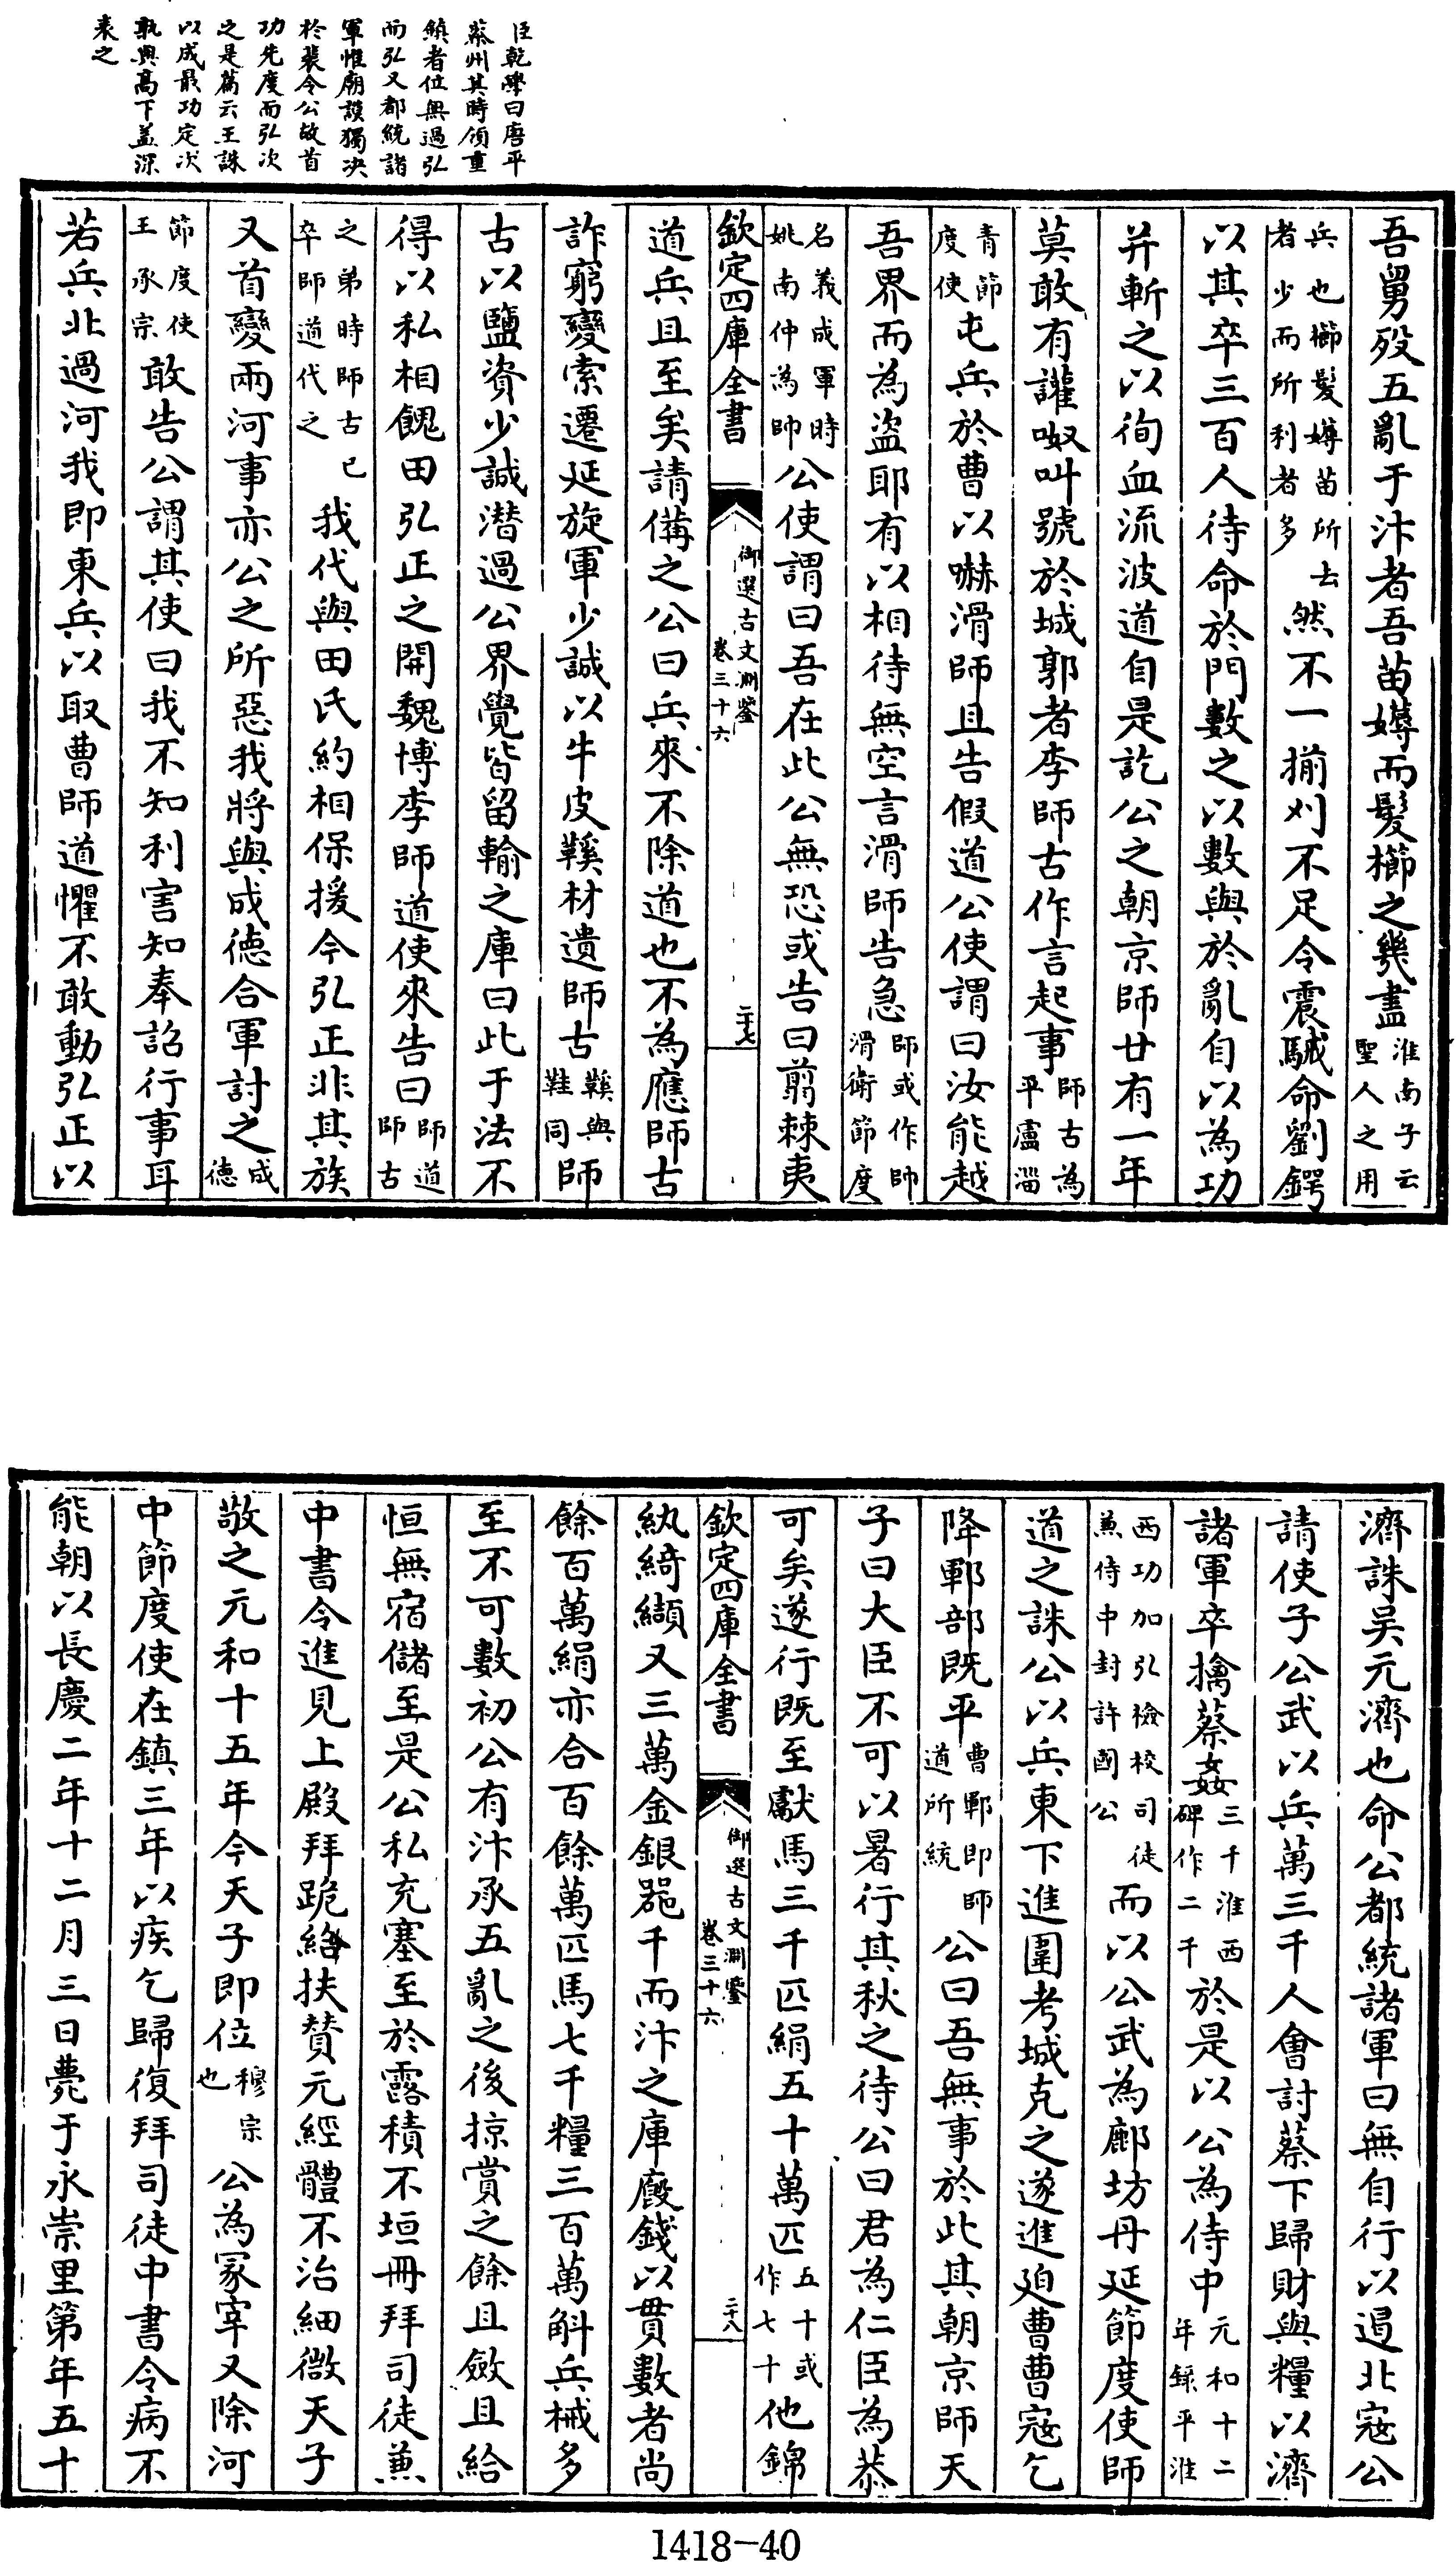 臣乾學曰唐平
蔡州其時領重
鎮者位無過弘
而弘又都統諸
軍惟廟謨獨决
於裴令公故首
功先度而弘次
之是篇云王誅
以成最功定次
孰與髙下盖深
表之
吾舅殁五亂于汴者吾苗薅而髮櫛之幾盡淮南子云聖人之用
兵也櫛髮薅苗所去者少而所利者多然不一揃刈不足令震駴命劉鍔
以其卒三百人待命於門數之以數與於亂自以為功
并斬之以徇血流波道自是訖公之朝京師廿有一年
莫敢有讙呶叫號於城郭者李師古作言起事師古為平盧淄
青節度使屯兵於曹以嚇滑師且告假道公使謂曰汝能越
吾界而為盗耶有以相待無空言滑師告急師或作帥滑衛節度
名義成軍時姚南仲為帥公使謂曰吾在此公無恐或告曰翦棘夷
欽定四庫全書
御選古文淵鑒
卷三十六
二十七
道兵且至矣請備之公曰兵來不除道也不為應師古
詐窮變索遷延旋軍少誠以牛皮鞵材遺師古鞵與鞋同師
古以鹽資少誠潛過公界覺皆留輸之庫曰此于法不
得以私相餽田弘正之開魏博李師道使來告曰師道師古
之弟時師古已卒師道代之我代與田氏約相保援今弘正非其族
又首變兩河事亦公之所惡我將與成德合軍討之成德
節度使王承宗敢告公謂其使曰我不知利害知奉詔行事耳
若兵北過河我即東兵以取曹師道懼不敢動弘正以
濟誅吴元濟也命公都統諸軍曰無自行以遏北寇公
請使子公武以兵萬三千人會討蔡下歸財與糧以濟
諸軍卒擒蔡姦三千淮西碑作二千於是以公為侍中元和十二年録平淮
西功加弘檢校司徒兼侍中封許國公而以公武為鄜坊丹延節度使師
道之誅公以兵東下進圍考城克之遂進廹曹曹寇乞
降鄆部既平曹鄆即師道所統公曰吾無事於此其朝京師天
子曰大臣不可以暑行其秋之待公曰君為仁臣為恭
可矣遂行既至獻馬三千匹絹五十萬匹五十或作七十他錦
欽定四庫全書
御選古文淵鑒
卷三十六
二十八
紈綺纈又三萬金銀噐千而汴之庫廄錢以貫數者尚
餘百萬絹亦合百餘萬匹馬七千糧三百萬斛兵械多
至不可數初公有汴承五亂之後掠賞之餘且斂且給
恒無宿儲至是公私充塞至於露積不垣冊拜司徒兼
中書令進見上殿拜跪給扶贊元經體不治細微天子
敬之元和十五年今天子即位穆宗也公為冢宰又除河
中節度使在鎮三年以疾乞歸復拜司徒中書令病不
能朝以長慶二年十二月三日薨于永崇里第年五十
1418-40